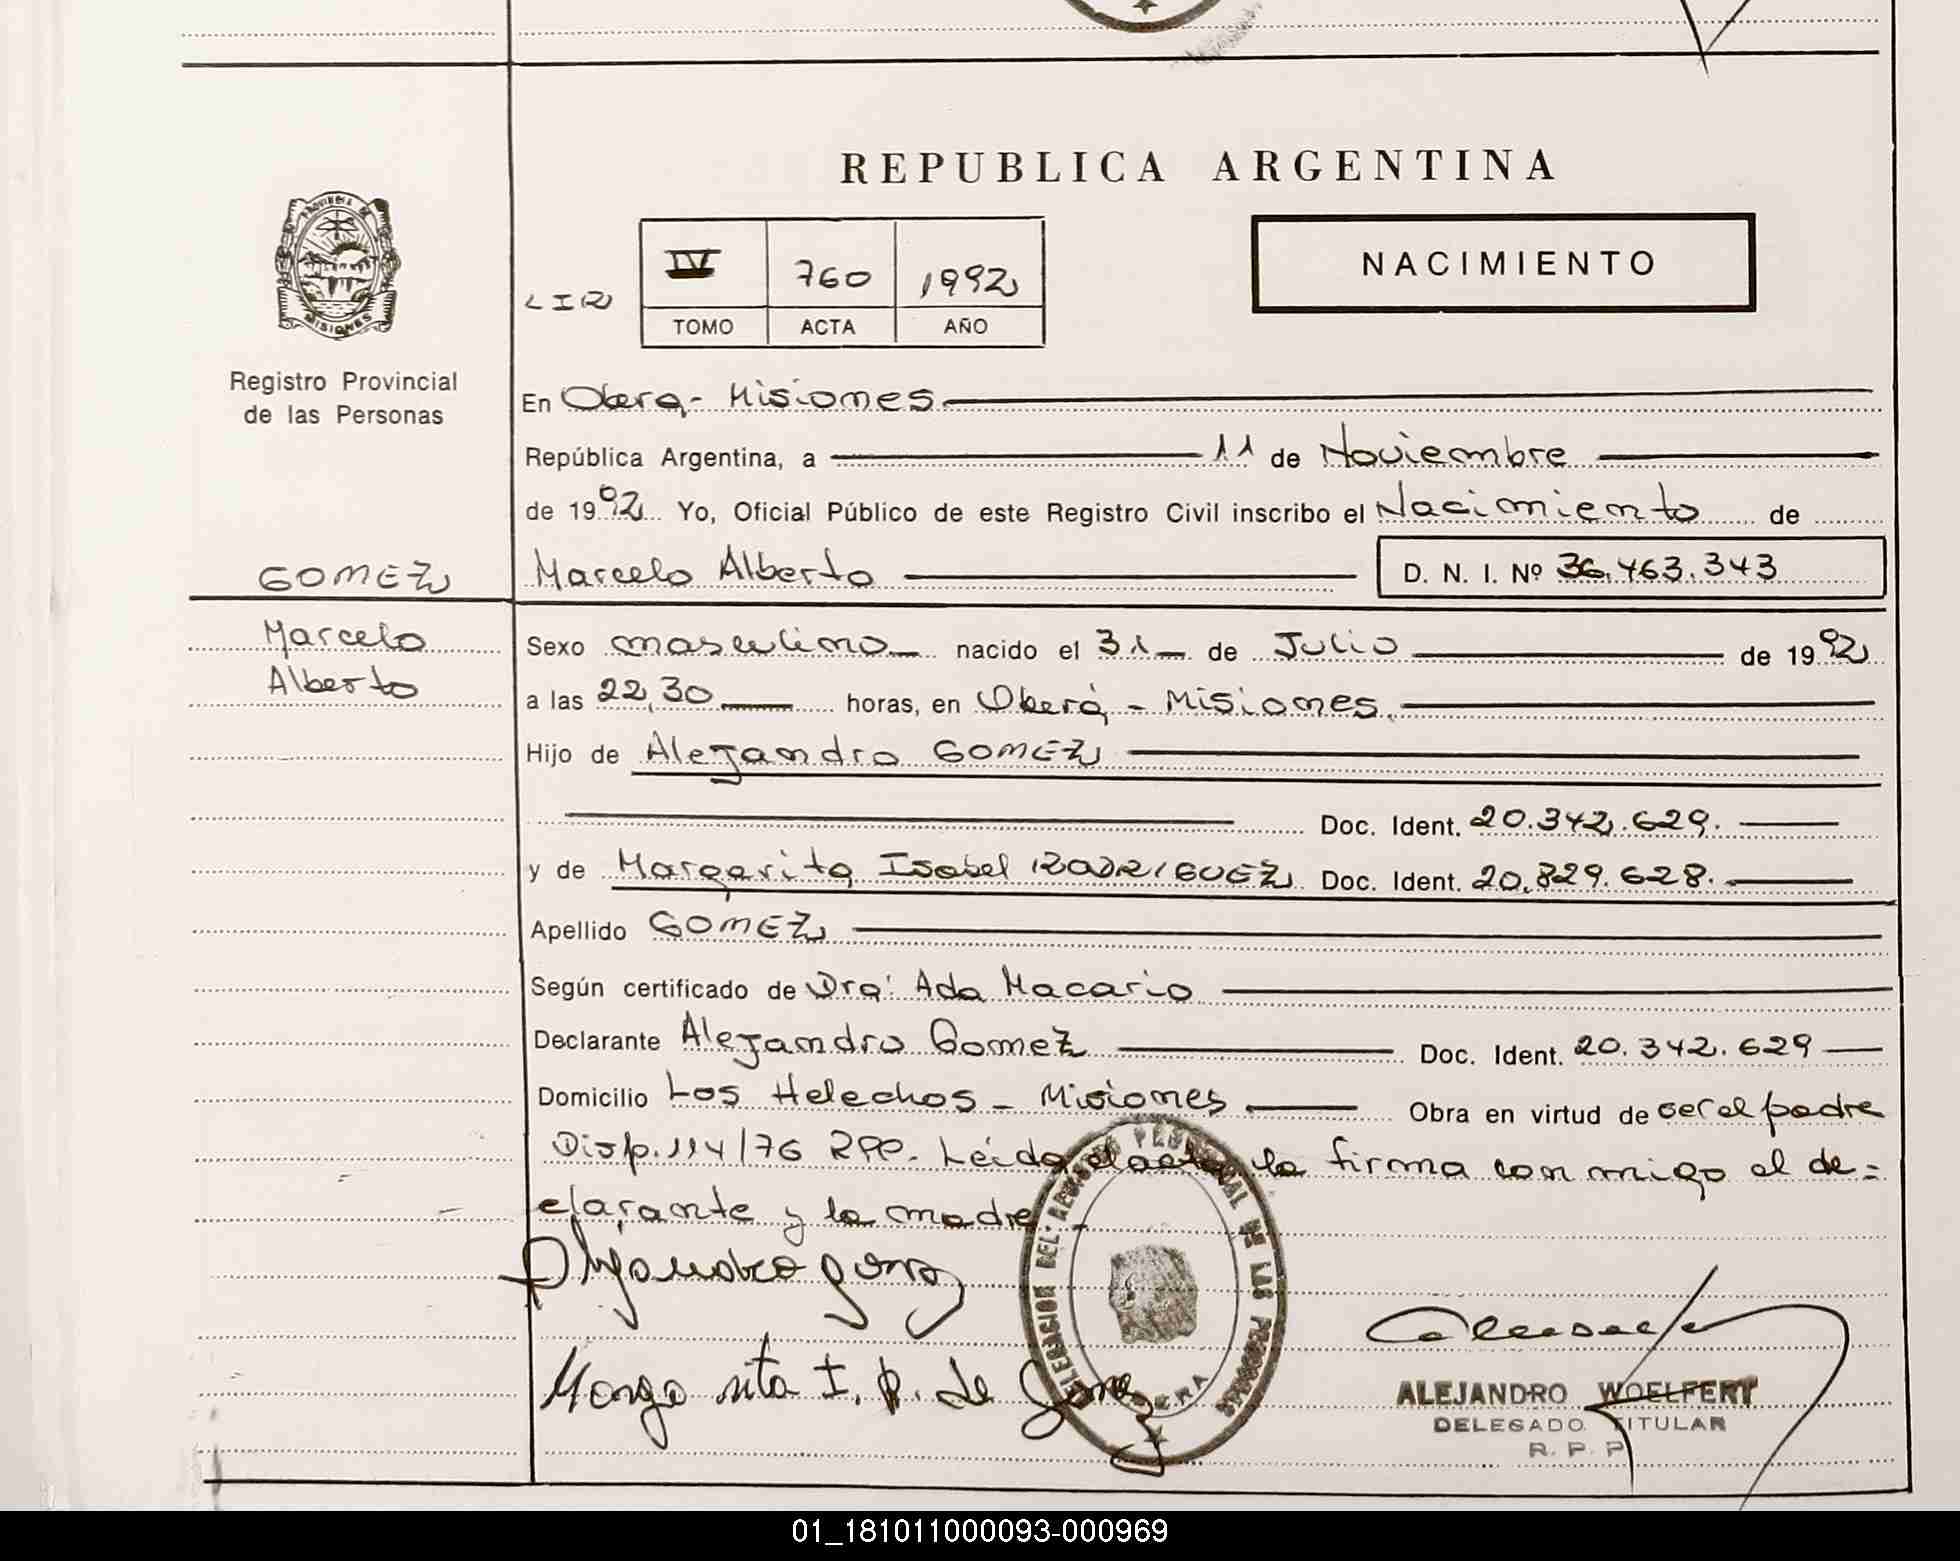 REPUBLICA ARGENTINA
PROVINCIA DE
MISIONES
Registro Provincial
de las Personas
IV 760 1992
TOMO ACTA AÑO
NACIMIENTO
En Obera - Misiones
República Argentina, a 11 de Noviembre
de 1992 Yo, Oficial Público de este Registro Civil inscribo el Nacimiento de
GOMEZ
Marcelo Alberto D. N. I. Nº 36.463.343
Marcelo
Alberto
Sexo masculino nacido el 31 de Julio de 1992
a las 22,30 horas, en Oberá - Misiones.
Hijo de Alejandro GOMEZ
Doc. Ident. 20.342.629.
y de Margarita Isabel RODRIGUEZ Doc. Ident. 20.829.628.
Apellido GOMEZ
Según certificado de Dra: Ada Macario
Declarante Alejandro Gomez Doc. Ident. 20.342.629
Domicilio Los Helechos - Misiones Obra en virtud de ser el padre
Disp. 114/76 RPP. Leída el acta la firma con migo el de=
clarante y la madre -
Alejandro gomez
Margarita I. R. de Gomez
DELEGACION DEL REGISTRO PROVINCIAL DE LAS PERSONAS
OBERA
ALEJANDRO WOELFERT
DELEGADO TITULAR
R. P. P.
01_181011000093-000969